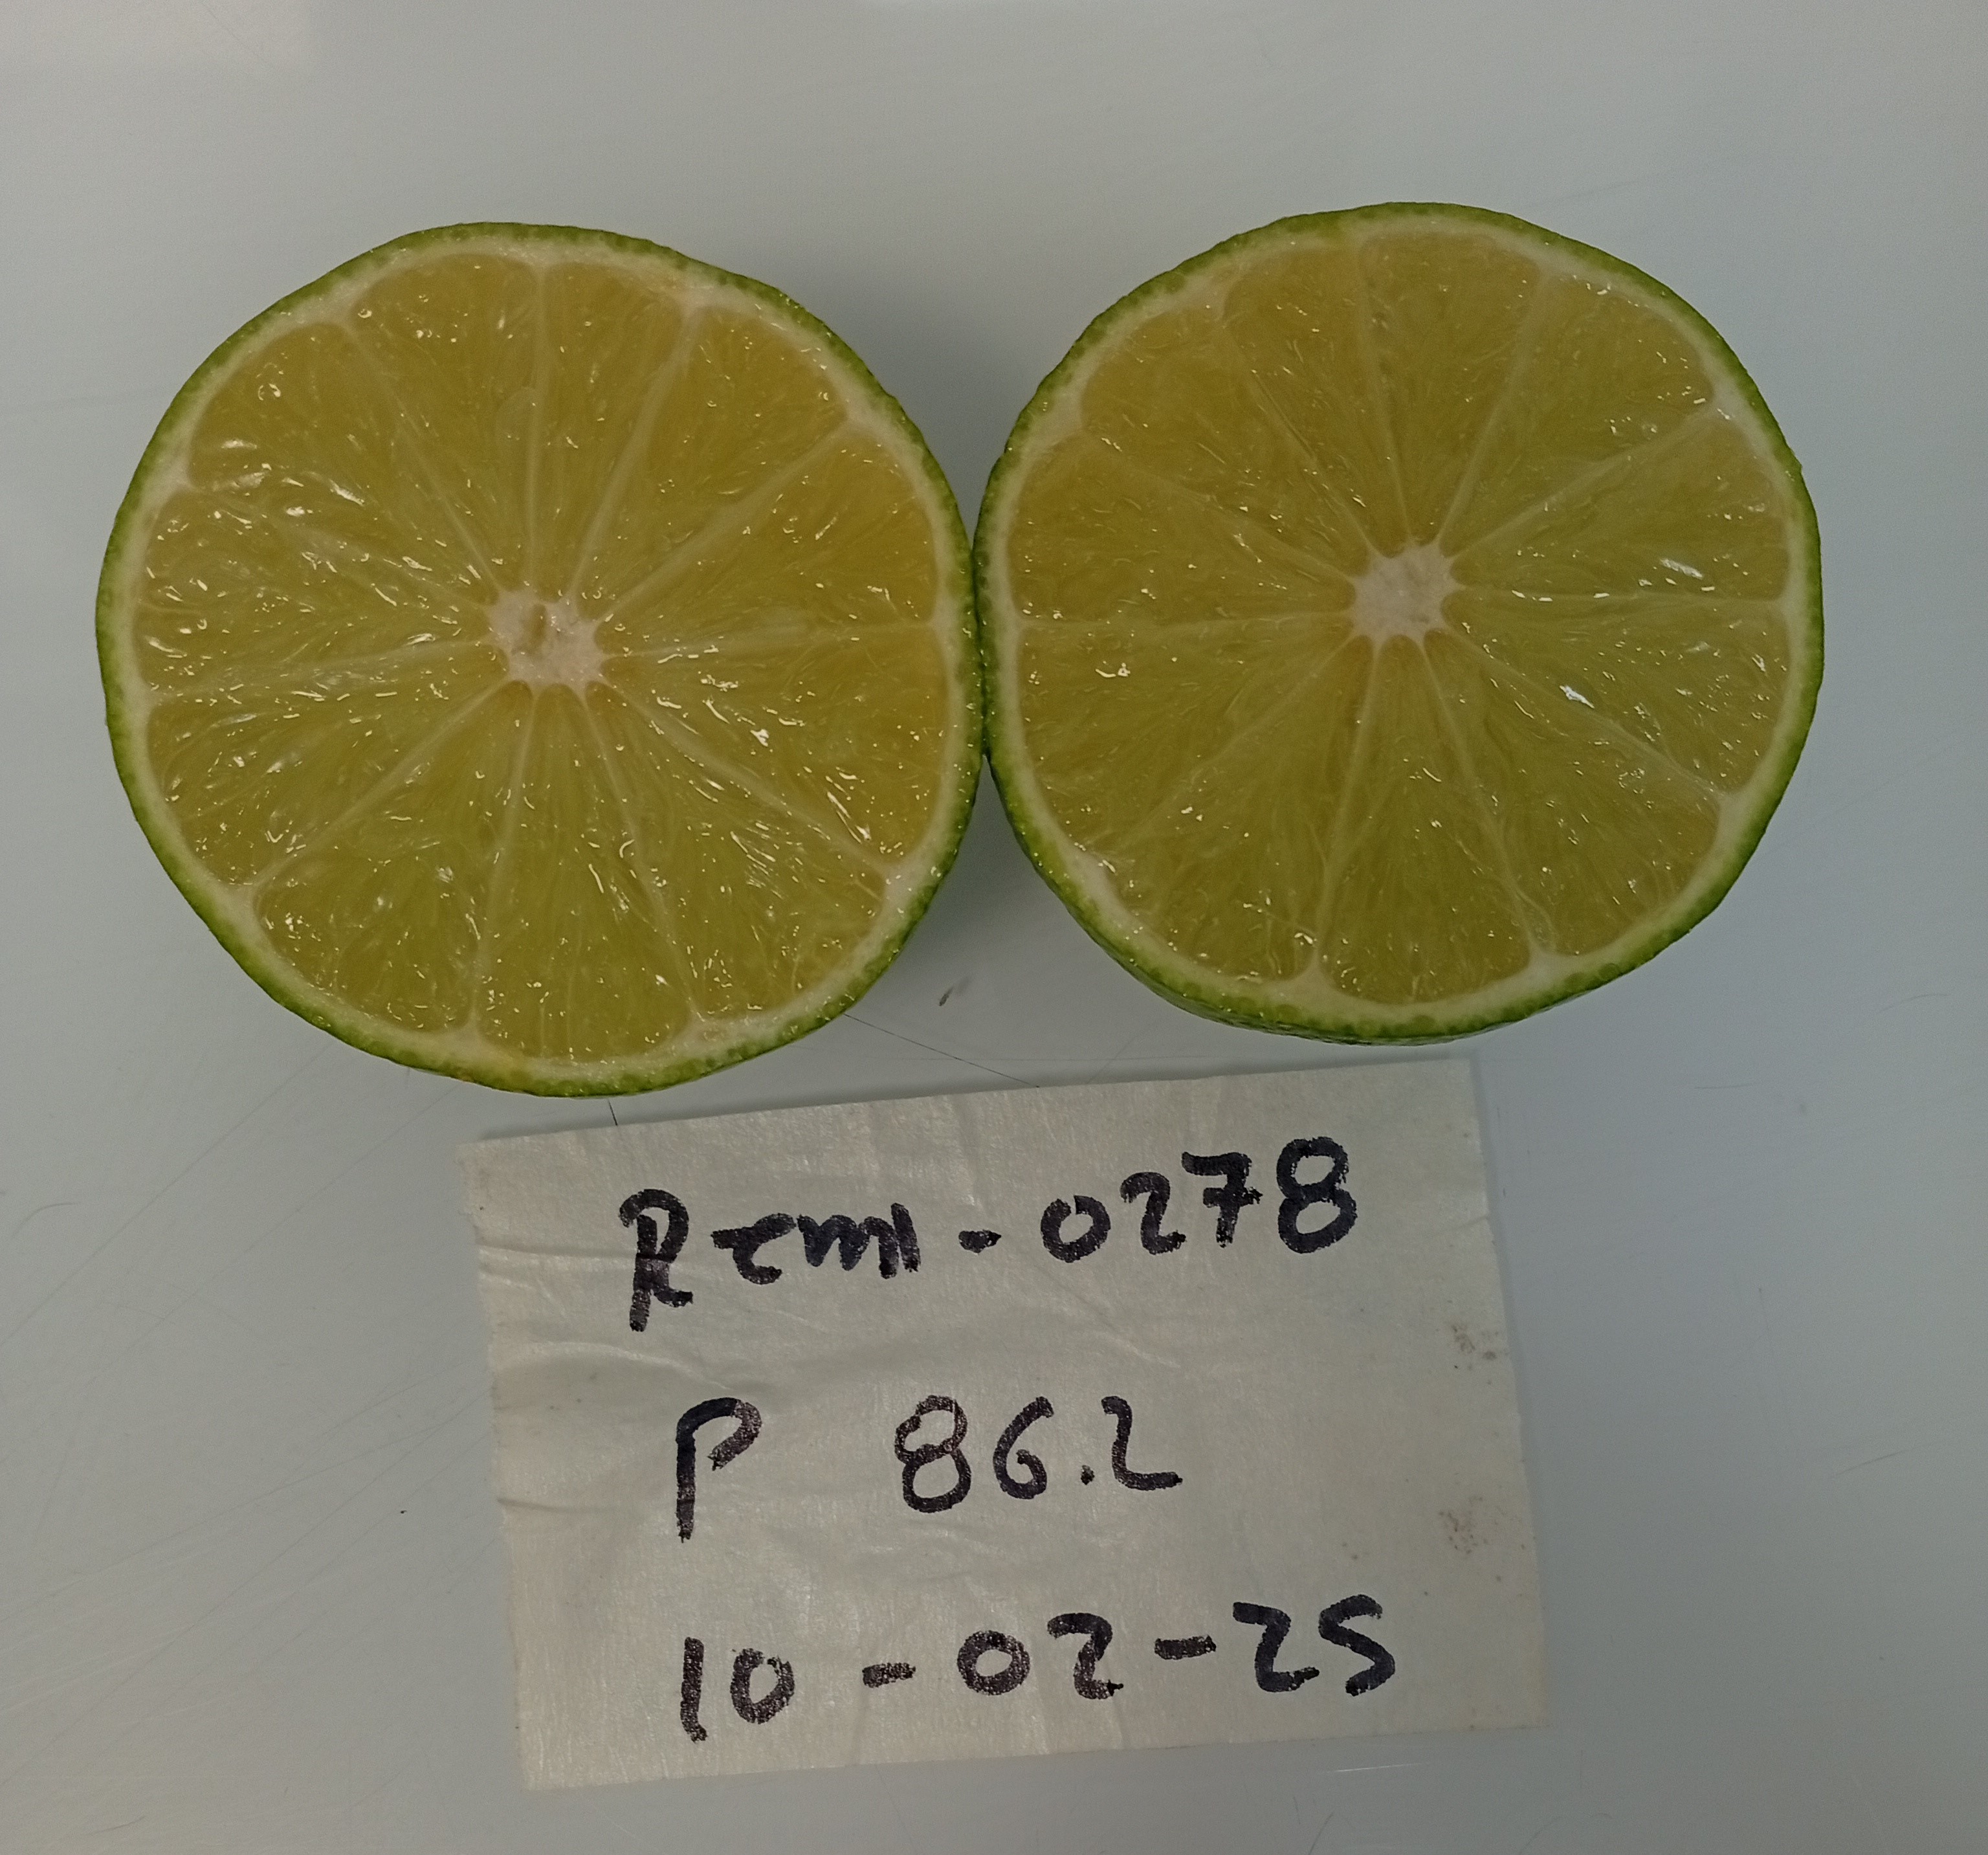 Remi-0278
P 86.2
10-02-25